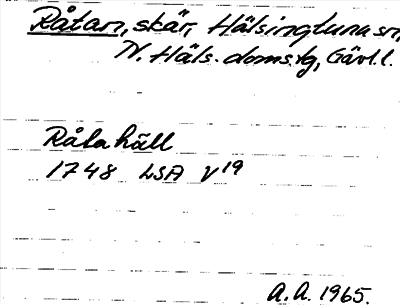 Råtan, skär, Hälsingtuna sn,
N. Häls. doms.tg, Gävl.l.
Råla häll
1748 LSA V19
A.A. 1965.